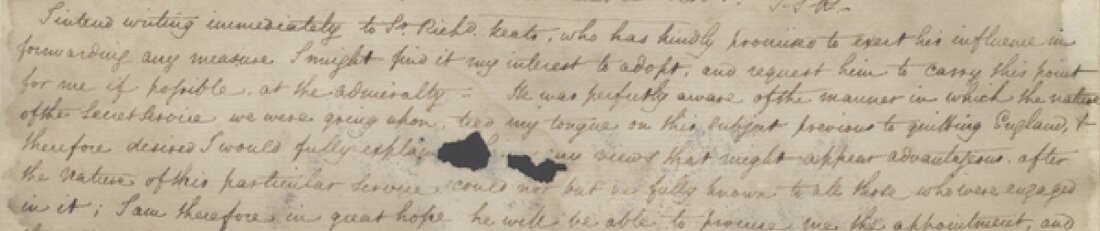 I intend writing immediately to Sr. Richd. Keats, who has kindly promised to exert his influence in
forwarding any measure I might find it my interest to adopt, and request him to carry this point
for me if possible, at the admiralty: He was perfectly aware of the manner in which the nature
of the Secret Service we were going upon, tied my tongue on this subject previous to quitting England, &
therefore desired I would fully explain my views that might appear advantageous, after
the nature of this particular service, could not but be fully known to all those who were engaged
in it; I am therefore in great hope he will be able to procure me the appointment, and